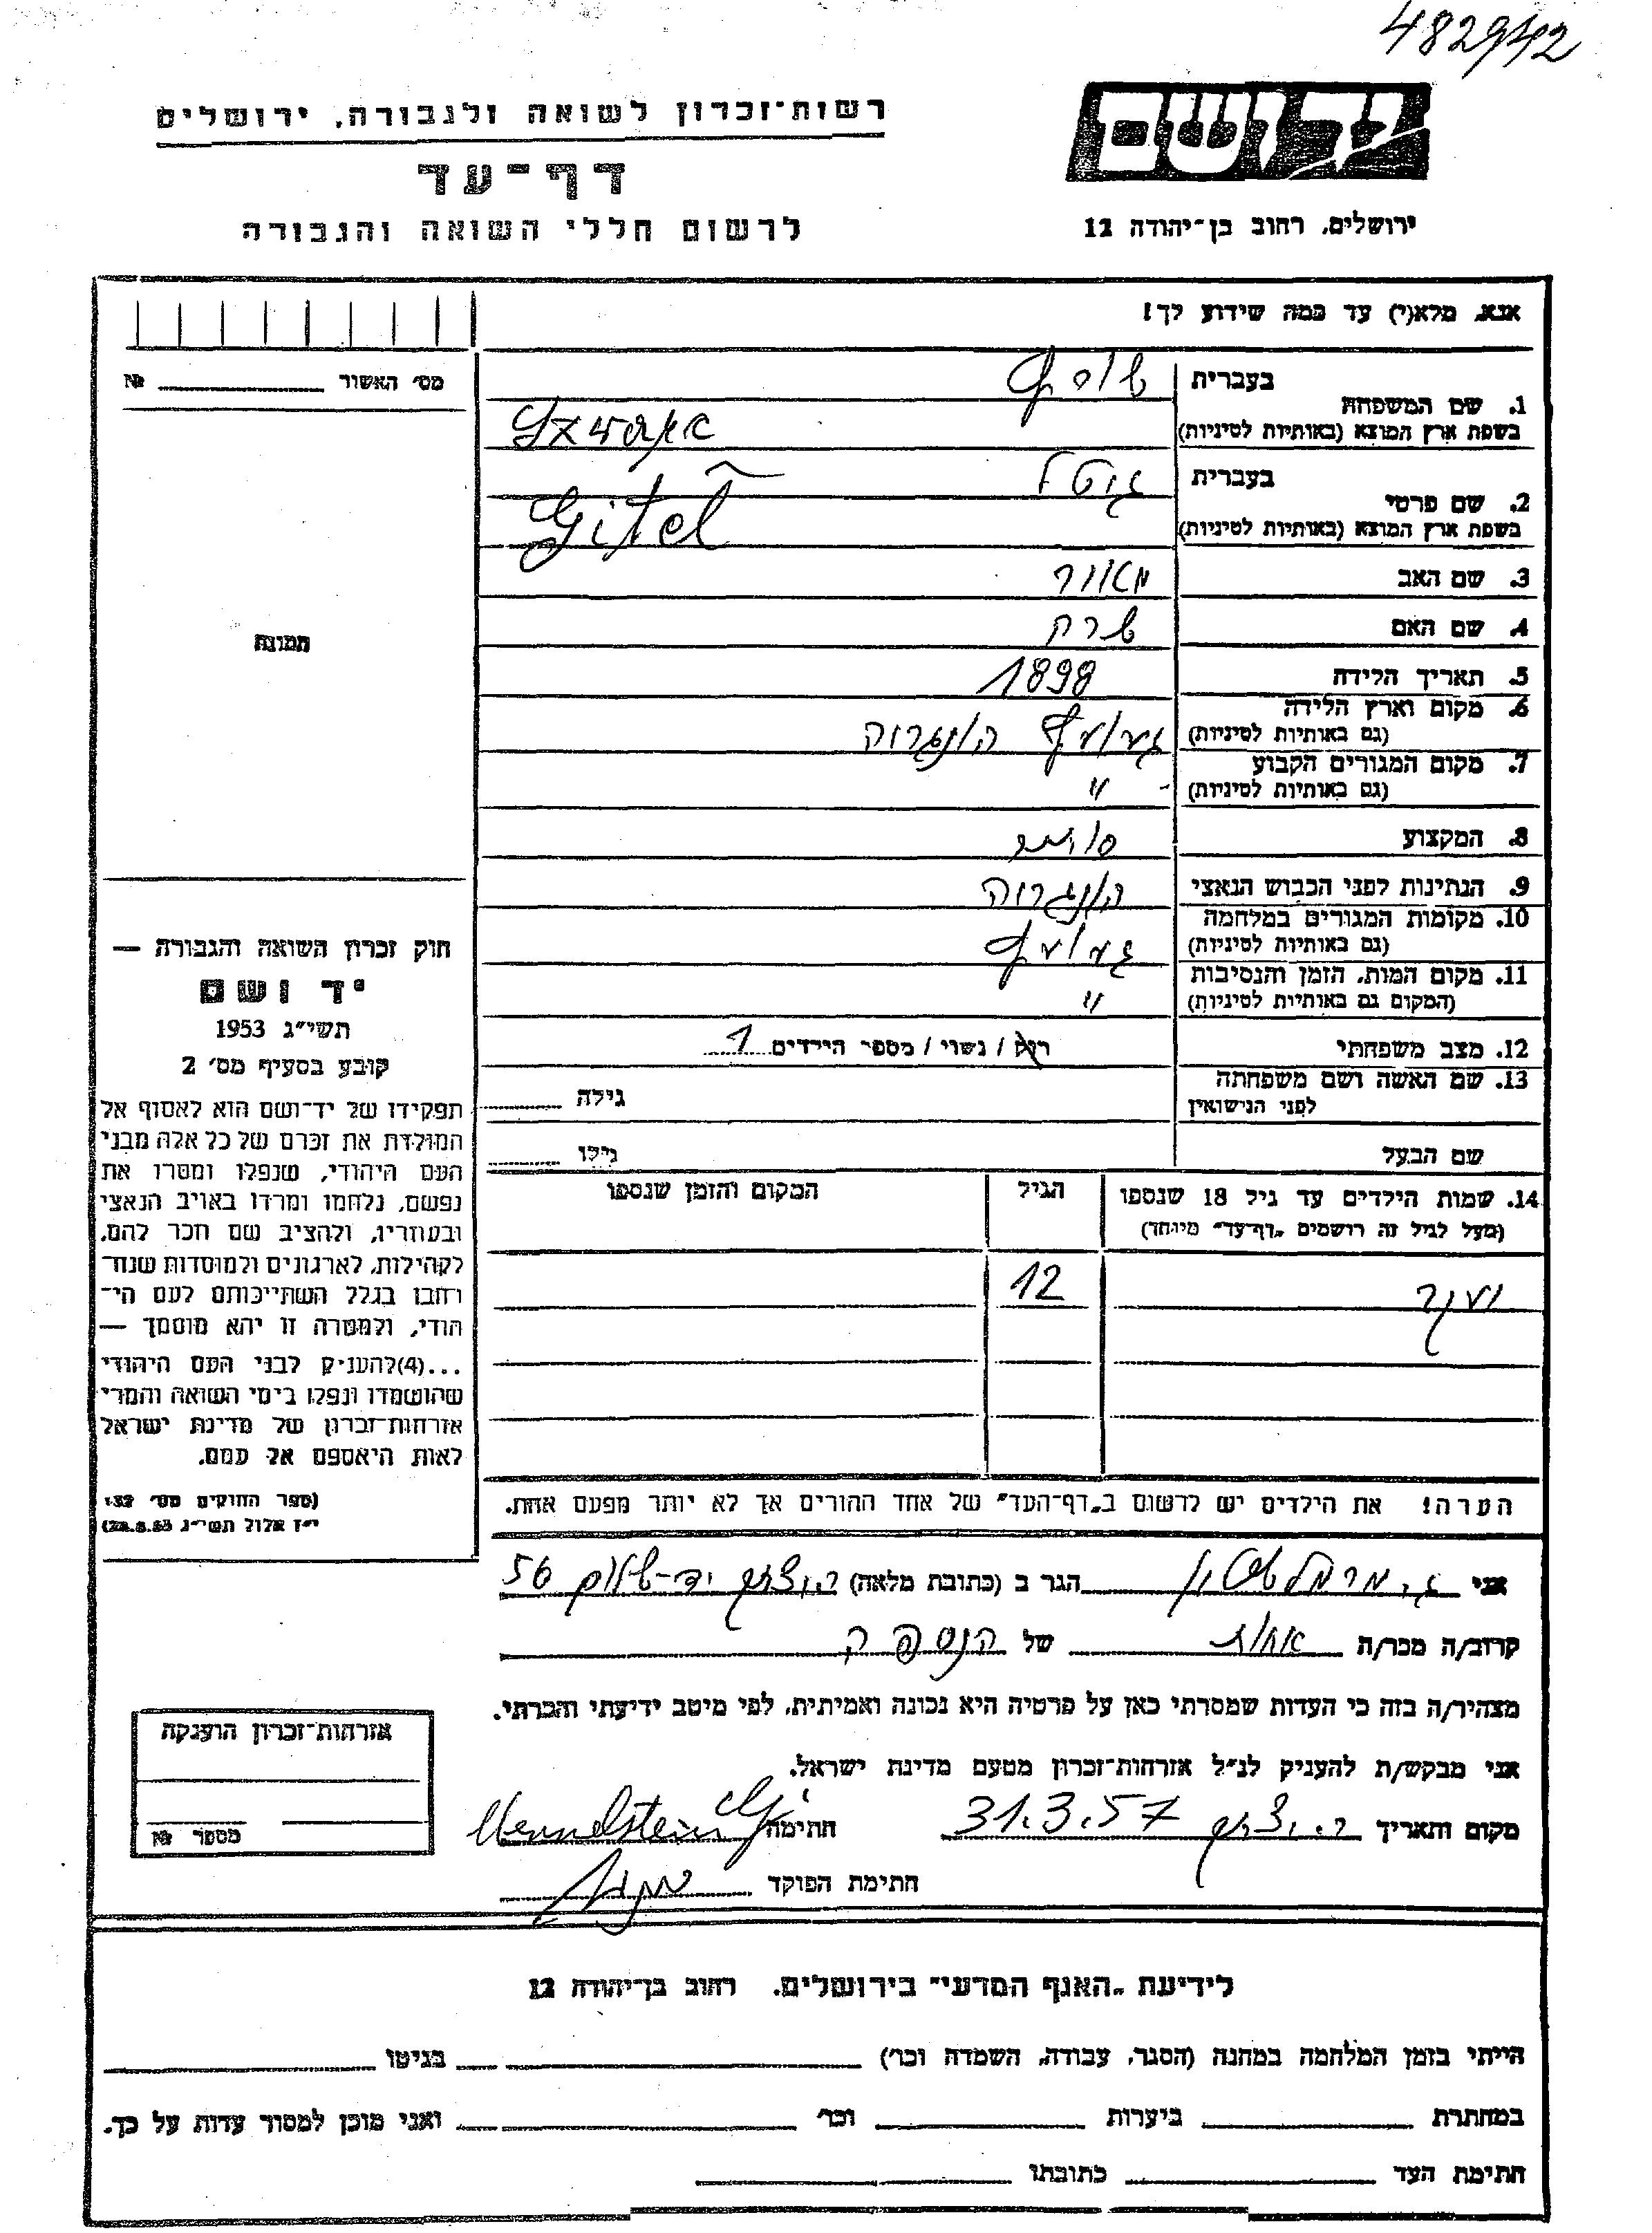 482942
רשות־זכרון לשואה ולגבורה, ירושלים
יד ושם
דף־עד
לרשום חללי השואה והגבורה
ירושלים, רחוב בן־יהודה 12
אנא, מלא(י) עד כמה שידוע לך!
מס׳ האשור №
1. שם המשפחה
בעברית
בשפת ארץ המוצא (באותיות לטיניות)
2. שם פרטי
בעברית גיטל
בשפת ארץ המוצא (באותיות לטיניות) Gitel
3. שם האב מאיר
4. שם האם שרה
5. תאריך הלידה 1898
6. מקום וארץ הלידה
(גם באותיות לטיניות) הונגריה
7. מקום המגורים הקבוע
(גם באותיות לטיניות) - "
8. המקצוע סוחר
9. הנתינות לפני הכבוש הנאצי הונגריה
10. מקומות המגורים במלחמה
(גם באותיות לטיניות)
11. מקום המות, הזמן והנסיבות
(המקום גם באותיות לטיניות) "
12. מצב משפחתי רוק / נשוי / מספר הילדים 1
13. שם האשה ושם משפחתה
לפני הנישואין גילה
שם הבעל גילו
14. שמות הילדים עד גיל 18 שנספו
(מעל לגיל זה רושמים „דף־עד" מיוחד)
הגיל
המקום והזמן שנספו
12
הערה! את הילדים יש לרשום ב„דף־העד" של אחד ההורים אך לא יותר מפעם אחת.
תמונה
חוק זכרון השואה והגבורה —
יד ושם
תשי״ג 1953
קובע בסעיף מס׳ 2
תפקידו של יד־ושם הוא לאסוף אל
המולדת את זכרם של כל אלה מבני
העם היהודי, שנפלו ומסרו את
נפשם, נלחמו ומרדו באויב הנאצי
ובעוזריו, ולהציב שם וזכר להם,
לקהילות, לארגונים ולמוסדות שנח־
רחבו בגלל השתייכותם לעם הי־
הודי, ולמטרה זו יהא מוסמך —
...(4)להעניק לבני העם היהודי
שהושמדו ונפלו בימי השואה והמרי
אזרחות־זכרון של מדינת ישראל
לאות היאספם אל עמם.
(ספר החוקים מס׳ 132
י״ז אלול תשי״ג 28.8.53)
אני הגר ב (כתובת מלאה) יד־שלום 56
קרוב/ה מכר/ה אחות של הנספה
מצהיר/ה בזה כי העדות שמסרתי כאן על פרטיה היא נכונה ואמיתית, לפי מיטב ידיעתי והכרתי.
אני מבקש/ת להעניק לנ״ל אזרחות־זכרון מטעם מדינת ישראל.
מקום ותאריך 31.3.57 חתימה
חתימת הפוקד
אזרחות־זכרון הוענקה
מספר №
לידיעת „האגף המדעי" בירושלים. רחוב בן־יהודה 12
הייתי בזמן המלחמה במחנה (הסגר, עבודה, השמדה וכו׳) בגיטו
במחתרת ביערות וכו׳ ואני מוכן למסור עדות על כך.
חתימת העד כתובתו